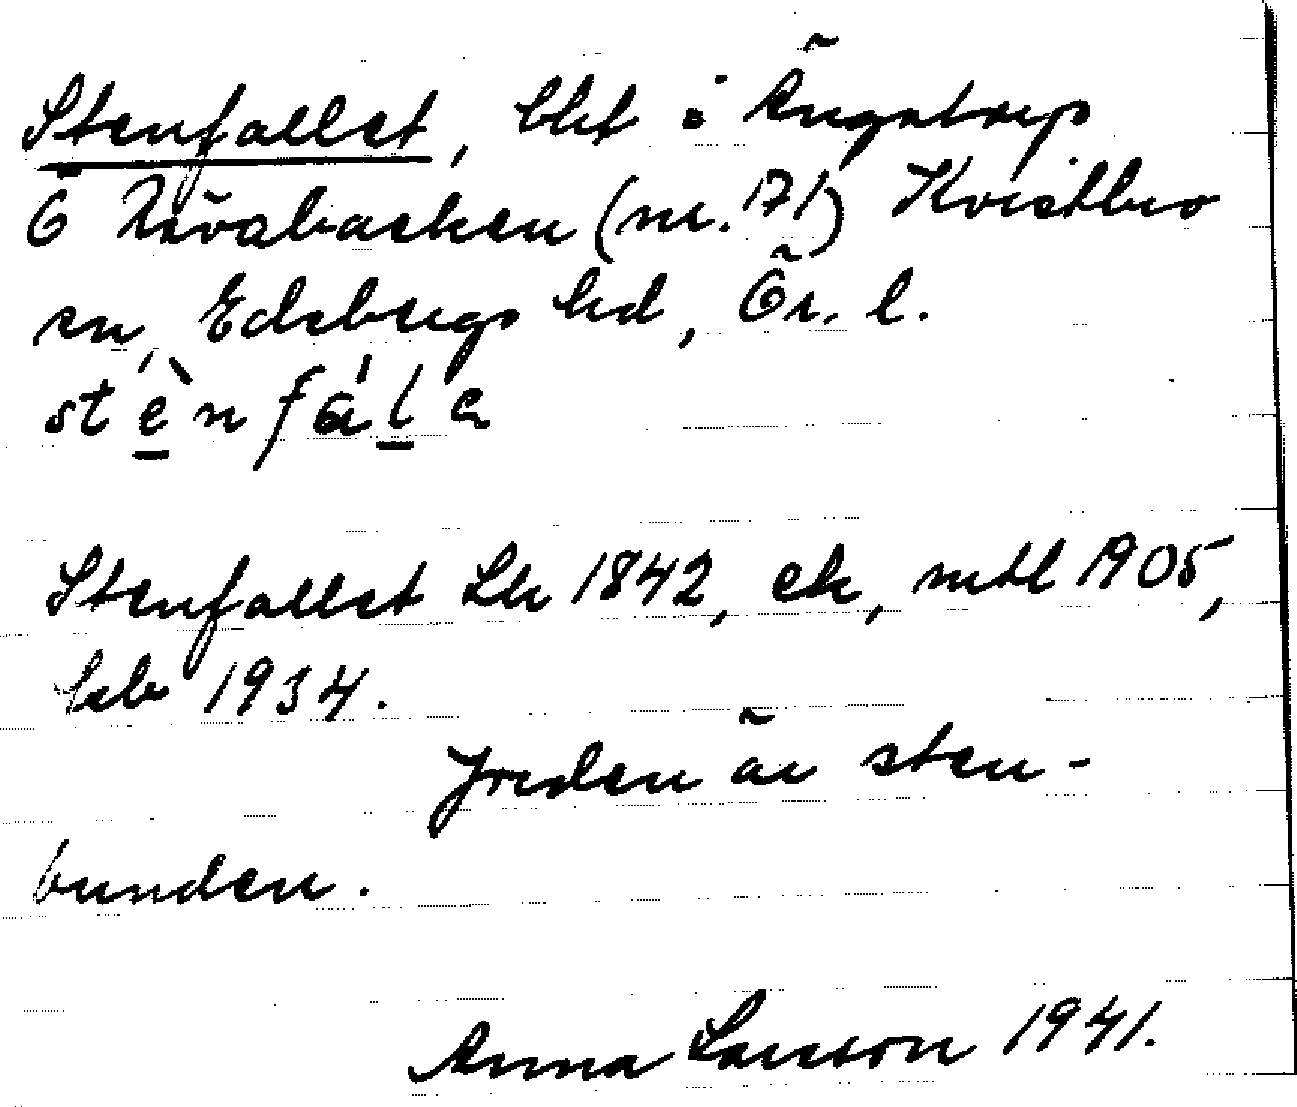 Stenfallet, bbt i Ängstorp
Ö Rävabacken (nr. 171) Kvistbro
sn, Edsbergs hd, Ör. l.
stènfála
Stenfallet Lk 1842, ek, mtl 1905,
hsb 1934.
Jorden är sten-
bunden.
Anna Larsson 1941.